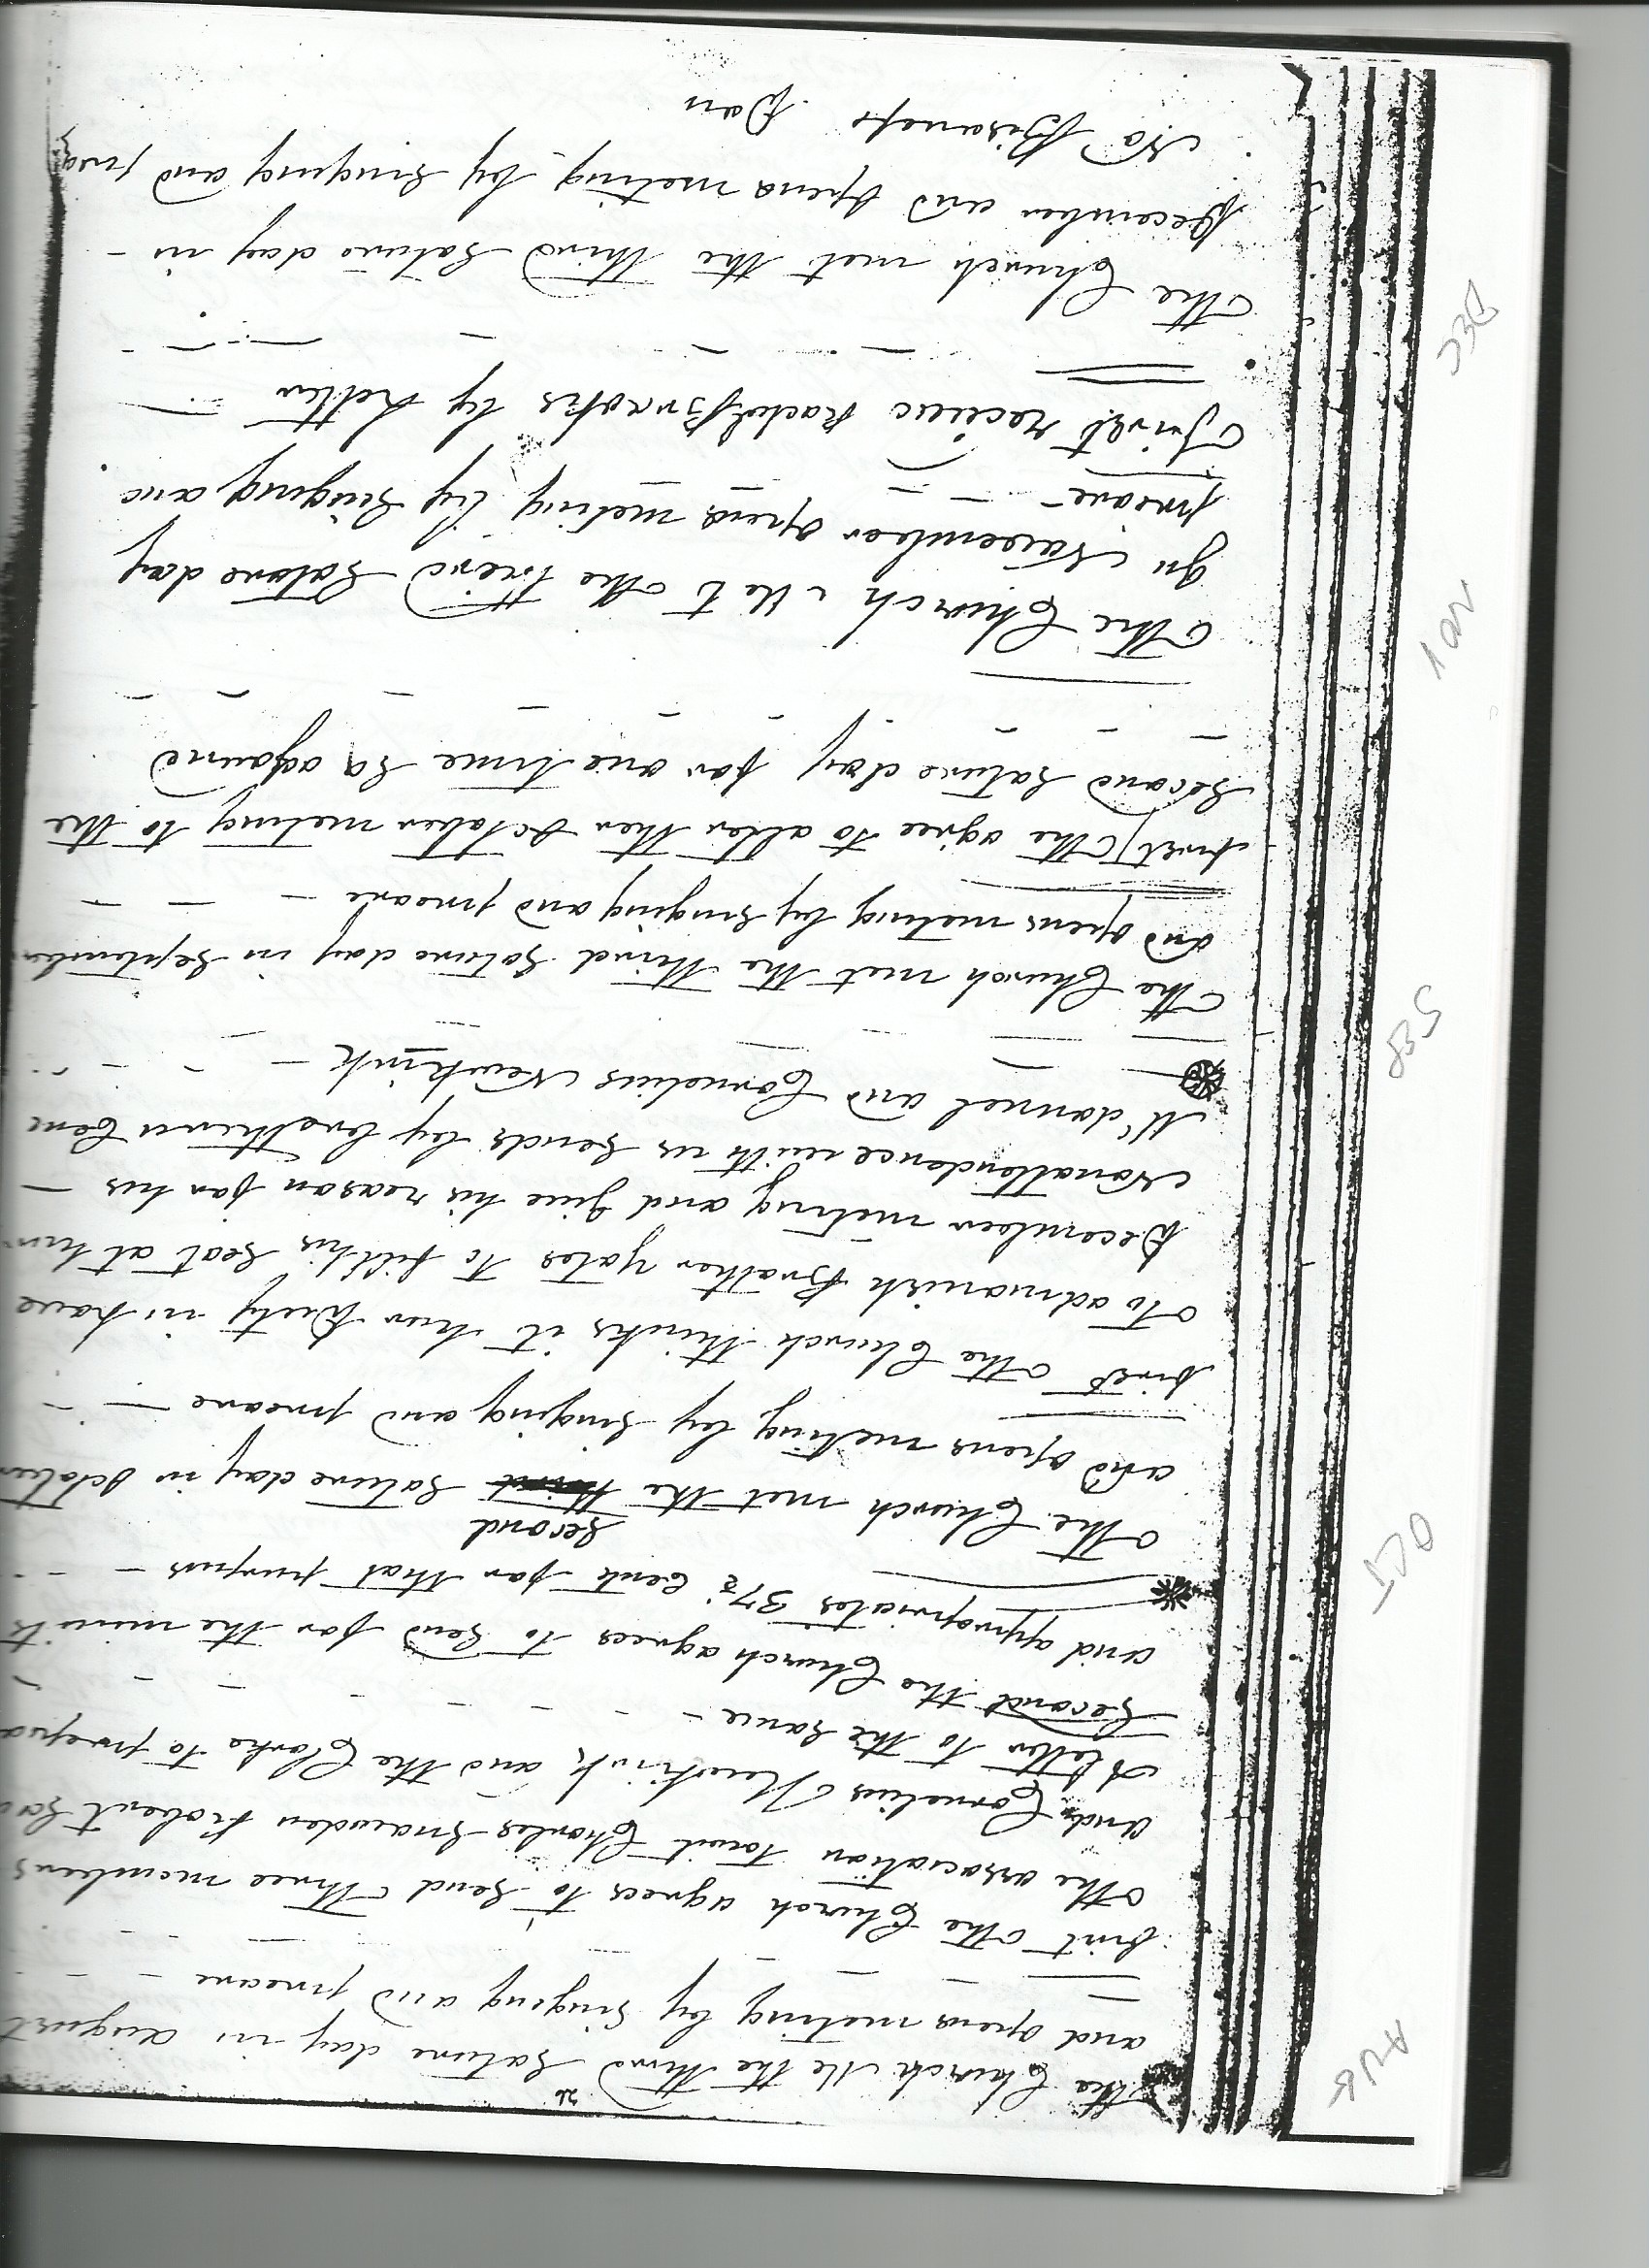 The Church Me the third Sature day in august
and opens meting by Singing and preare
AUG
first The Church agrees to Send Three members
The association towit Charles Snawden Robert
and Cornelius Newkirk and the Clarke to prepa
A letter to the Same
Second the Church agrees to Send for the minits
and appropriates 37½ Cents for that purpus
second
The Church met the third Saturedday in October
OCT
and opens meting by Singing and preare
first The Church thinks it hur Duty in have
To admonish Brother Yates to fill his Seat at hur
December meting and Give his reason for his
Nonattendance with us Sends by brethern Gene
Mcdannel and Cornelius Newkirk
The Church met the third Saturedday in September
SEP
and opens meting by Singing and preare
first The agree to alter ther October meting to the
Second Saturedday for one time So ajourned
The Church Met The theird Satureday
NOV
In Novembor opens meting by Singing and
preare
First recieve Rachel by Letter
The Church met the third Saturedday in
DEC
December and opens meting by Singing and pray
No Bisaness Don